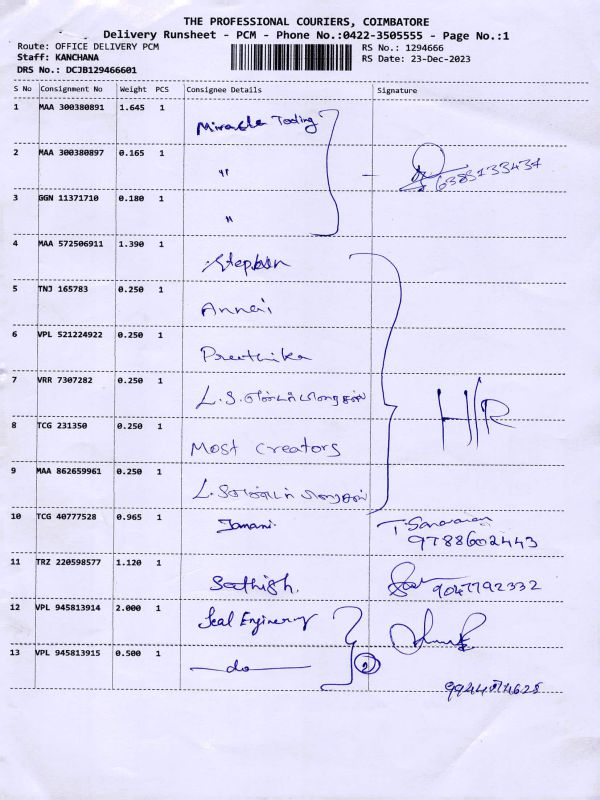 THE PROFESSIONAL COURIERS, COIMBATORE
Delivery Runsheet - PCM - Phone No.:0422-3505555 - Page No.:1
Route: OFFICE DELIVERY PCM
Staff: KANCHANA
DRS No.: DCJB129466601
RS No.: 1294666
RS Date: 23-Dec-2023
S No Consignment No Weight PCS Consignee Details Signature
1 MAA 300380891 1.645 1 Miracle Tading
2 MAA 300380897 0.165 1 " 6383133434
3 GGN 11371710 0.180 1 "
4 MAA 572506911 1.390 1 Stephen
5 TNJ 165783 0.250 1 Annai
6 VPL 521224922 0.250 1 Preethika
7 VRR 7307282 0.250 1 L.S. H/R
8 TCG 231350 0.250 1 Most Creators
9 MAA 862659961 0.250 1 L.S.
10 TCG 40777528 0.965 1 Jamani. T. Saravanan
9788602443
11 TRZ 220598577 1.120 1 Sathish. 9047792332
12 VPL 945813914 2.000 1 Seal Enginery
13 VPL 945813915 0.500 1 —do— 2